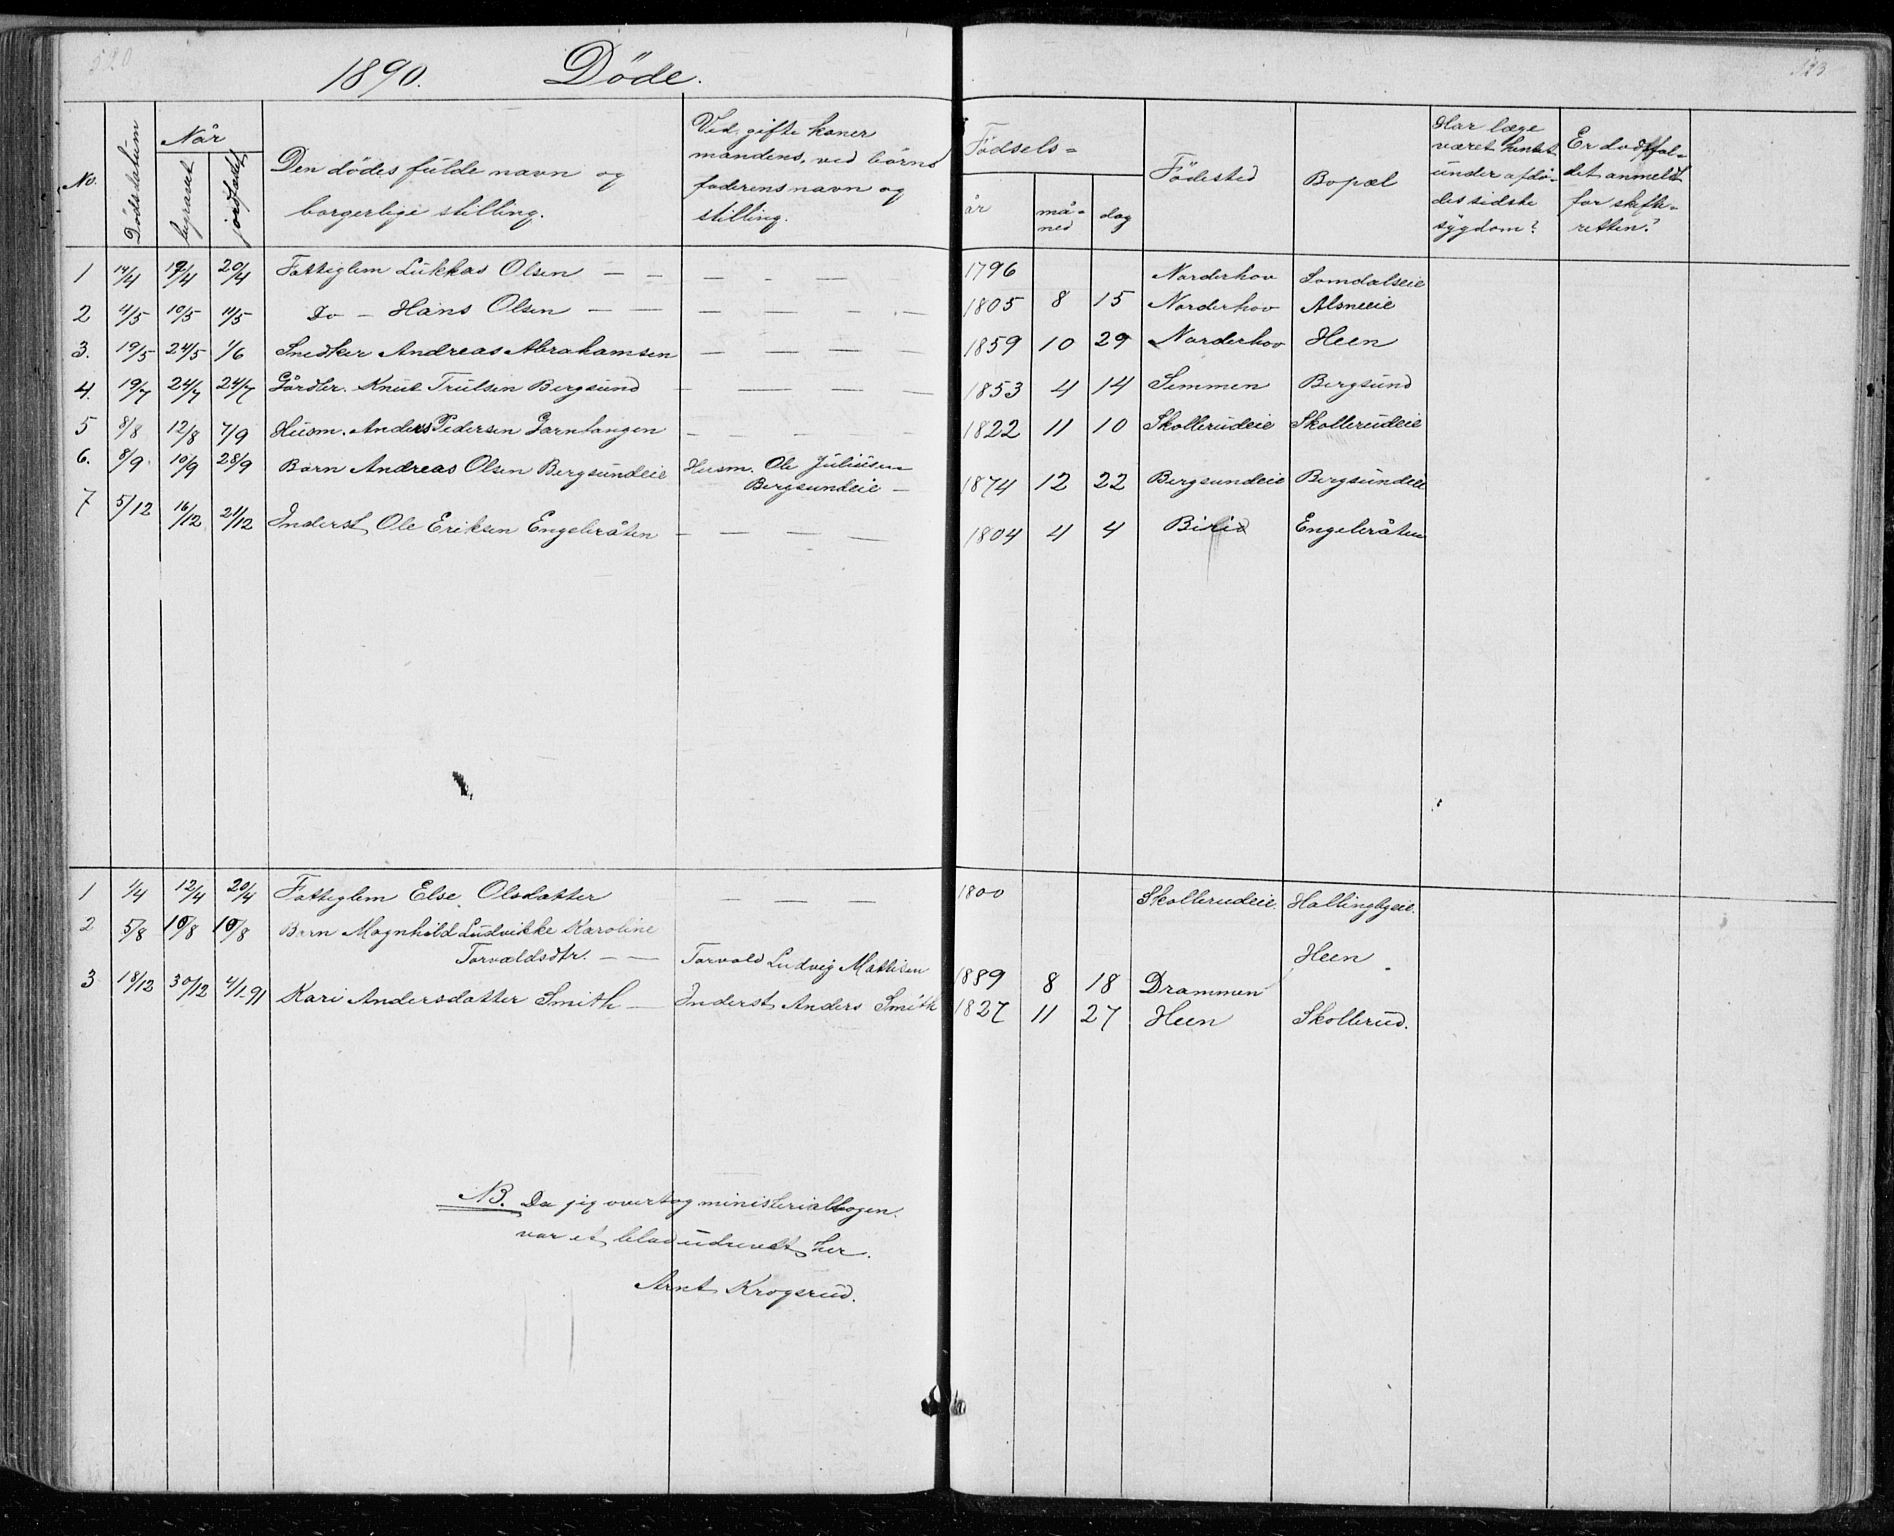 520
1890. Døde.
No.
Dødsdatum
Når
begravet
jordfæstet
Den dødes fulde navn og
borgerlige stilling.
Ved gifte koner
mandens, ved børns
faderens navn og
stilling.
Fødsels=
år
må=
ned
dag
Fødested
Bopæl
Har læge
været hentet
under afdø-
des sidste
sygdom?
Er dødsfal=
det anmeldt
for skifte=
retten?
1 14/4 19/4 20/4 Fattiglem Lukkas Olsen — — — — — 1796 Norderhov Somdalseie
2 4/5 10/5 11/5 Do — Hans Olsen — — — — — — 1805 8 15 Norderhov Alsneeie
3. 19/5 24/5 1/6 Snedker Andreas Abrahamsen — — — — 1859 10 29 Norderhov Heen
4. 19/7 24/7 24/7 Gårdbr. Knut Trulsen Bergsund — — — — 1853 4 14 Semmen Bergsund
5 8/8 12/8 7/9 Husm. Anders Pedersen Jarntangen — — — — — 1822 11 10 Skollerudeie Skollerudeie
6. 8/9 10/9 28/9 Barn Andreas Olsen Bergsundeie Husm. Ole Juliusen
Bergsundeie — 1874 12 22 Bergsundeie Bergsundeie
7 5/12 16/12 21/12 Inderst Ole Eriksen Engebråten — — — — 1804 4 4 Birid Engebråten
1 1/4 12/4 20/4 Fattiglem Else Olsdatter — — — 1800 Skollerudeie. Hallingbyeie.
2 5/8 10/8 10/8 Barn Magnhild Ludvikke Karoline
Torvaldsdtr. — — Torvald Ludvig Mattisen 1889 8 18 Drammen Heen
3 18/12 30/12 4/1-91 Kari Andersdatter Smith — Inderst Anders Smith 1827 11 27 Heen Skollerud.
NB. Da jeg overtog ministerialbogen.
var et blad udrevet her.
Arnt Krogsrud.